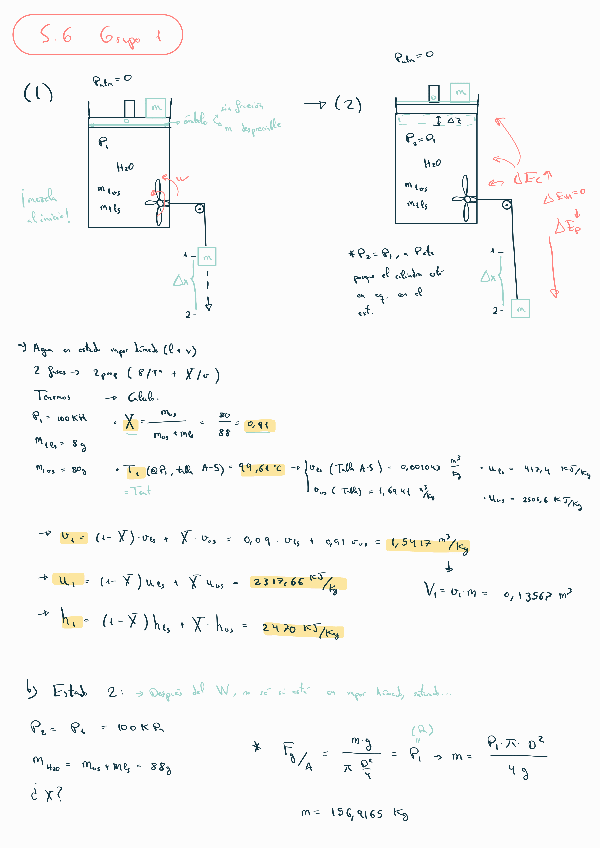 5.6 Grupo 1
(1)
Patm = 0
m
sin fricción
émbolo
m despreciable
P1
H2O
m1vs
m1ls
W
¡mezcla al inicio!
1 -
m
Δx
2 -
→ (2)
Patm = 0
m
Δz
P2 = P1
H2O
m1vs
m1ls
ΔEc↑
ΔEm = 0
ΔEp
* P2 = P1, a P cte
porque el cilindro está
en eq. en el
est.
1 -
Δx
2 -
m
a) Agua en estado vapor húmedo (l + v)
2 fases → 2 prop ( P/Tª + X/v )
Tenemos → Calculo.
P1 = 100 KPa
m1ls = 8g
m1vs = 80g
• X = mvs / mvs + mls = 80 / 88 = 0,91
• T1 (@P1, tabla A-5) = 99,61 ºC → vls (Tabla A-5) = 0,001043 m³/kg • uls = 417,4 KJ/Kg
= Tsat
vvs (Tabla) = 1,6941 m³/kg • uvs = 2505,6 KJ/Kg
→ v1 = (1 - X) · vls + X · vvs = 0,09 · vls + 0,91 vvs = 1,5417 m³/Kg
→ u1 = (1 - X) uls + X uvs = 2317,66 KJ/Kg
V1 = v1 · m = 0,13567 m³
→ h1 = (1 - X) hls + X · hvs = 2470 KJ/Kg
b) Estado 2: → Después del W, no sé si está en vapor húmedo, saturado...
P2 = P1 = 100 KPa
mH2O = mvs + mls = 88g
¿x?
(2)
* Fg/A = m·g / π D²/4 = P1 → m = P1 · π · D² / 4g
m = 156,9165 Kg